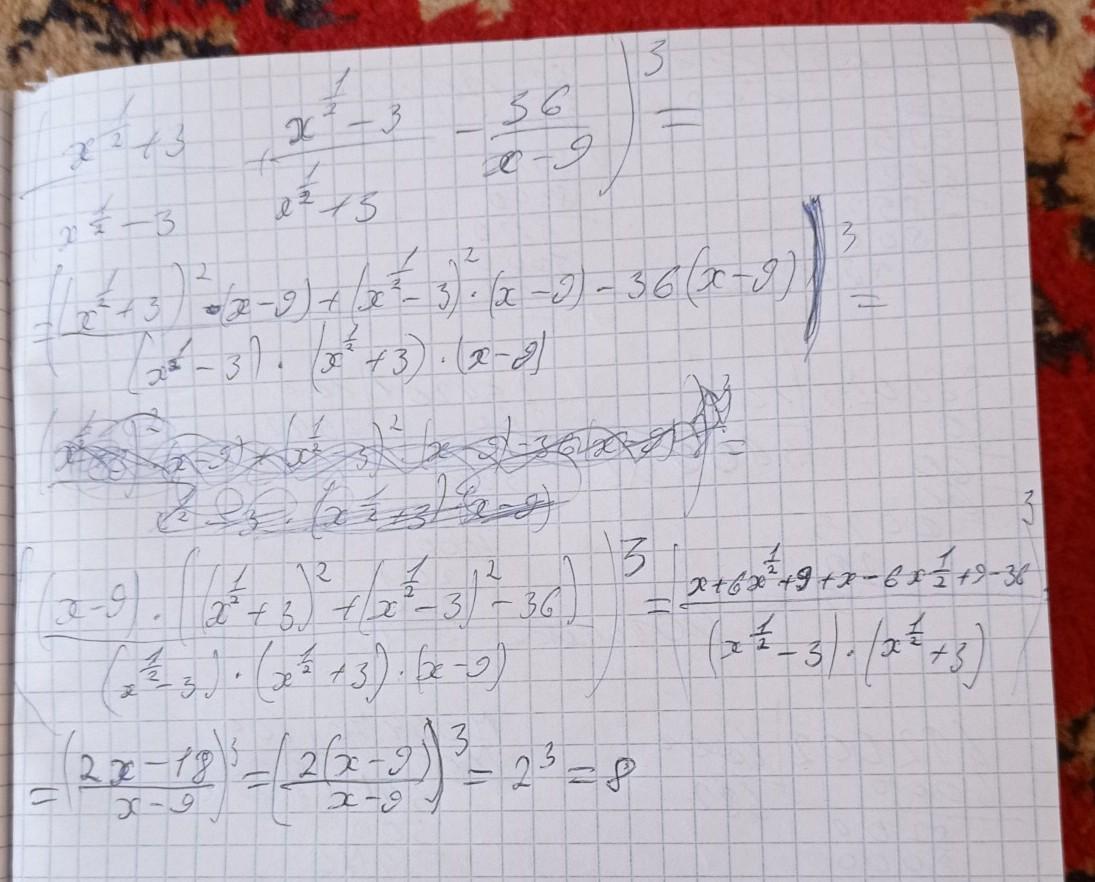 ( (x^{1/2} + 3)/(x^{1/2} - 3) + (x^{1/2} - 3)/(x^{1/2} + 3) - 36/(x - 9) )^3 =
= ( ((x^{1/2} + 3)^2 · (x - 9) + (x^{1/2} - 3)^2 · (x - 9) - 36(x - 9)) / ((x^{1/2} - 3) · (x^{1/2} + 3) · (x - 9)) )^3 =
( ((x - 9) · ((x^{1/2} + 3)^2 + (x^{1/2} - 3)^2 - 36)) / ((x^{1/2} - 3) · (x^{1/2} + 3) · (x - 9)) )^3 = ( (x + 6x^{1/2} + 9 + x - 6x^{1/2} + 9 - 36) / ((x^{1/2} - 3) · (x^{1/2} + 3)) )^3
= ( (2x - 18)/(x - 9) )^3 = ( (2(x - 9))/(x - 9) )^3 = 2^3 = 8